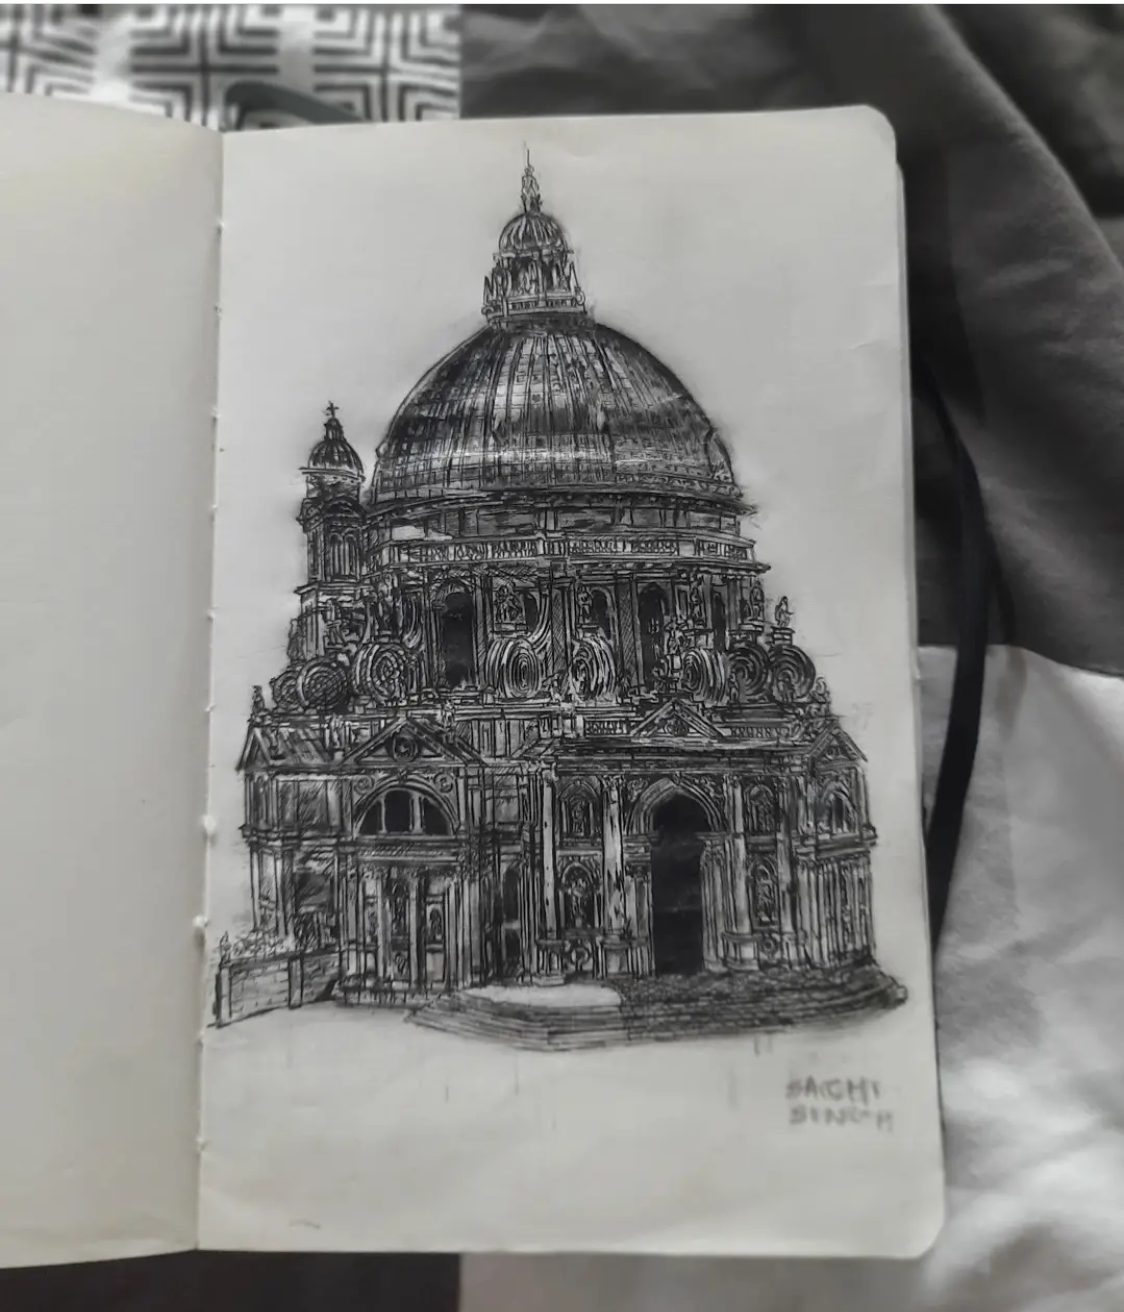 SACHI
SINGH